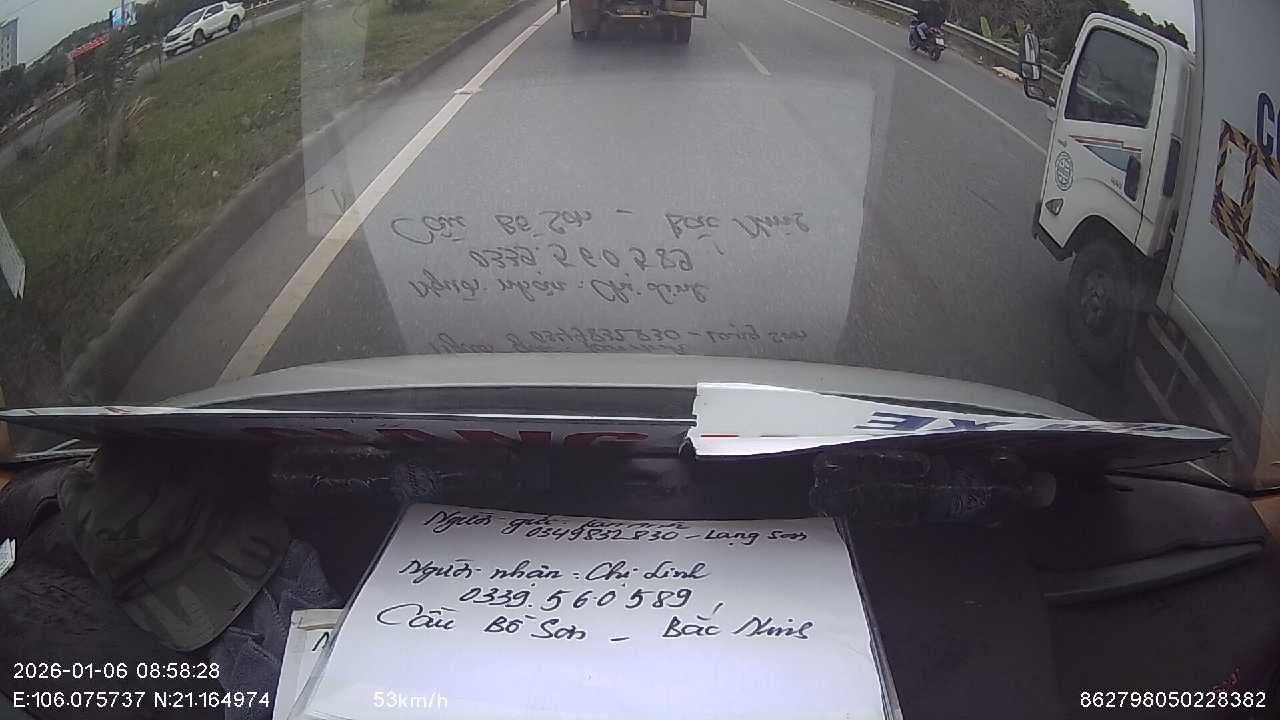 Người gửi:
0349832830 - Lạng Sơn
Người nhận: Chị Linh
0339.560589
Cầu Bồ Sơn - Bắc Ninh
XE
2026-01-06 08:58:28
E:106.075737 N:21.164974
53km/h
862798050228382